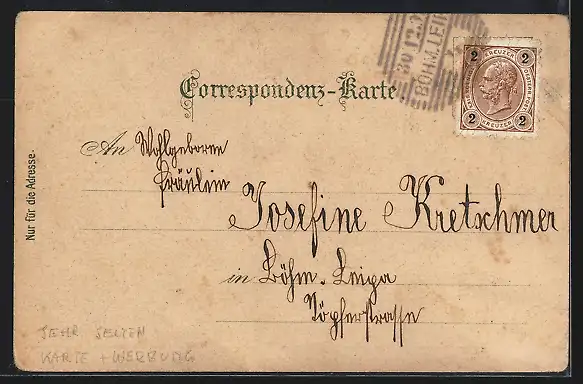 30.12.
BÖHM.LEI
2 KREUZER 2
2 KREUZER 2
Correspondenz-Karte
An Wohlgeborene
Fräulein
Josefine Kretschmer
in Böhm. Leipa
Töpferstrasse
Nur für die Adresse.
SEHR SELTEN
KARTE + WERBUNG